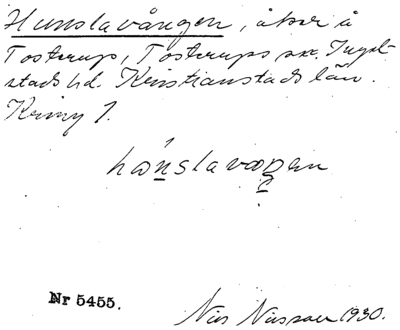 Hunslavången, åker å
Tosterup, Tosterups sn. Ingel-
stads hd. Kristianstads län.
Kriny 1.
hånslavaŋen
Nr 5455.
Nils Nilsson 1930.